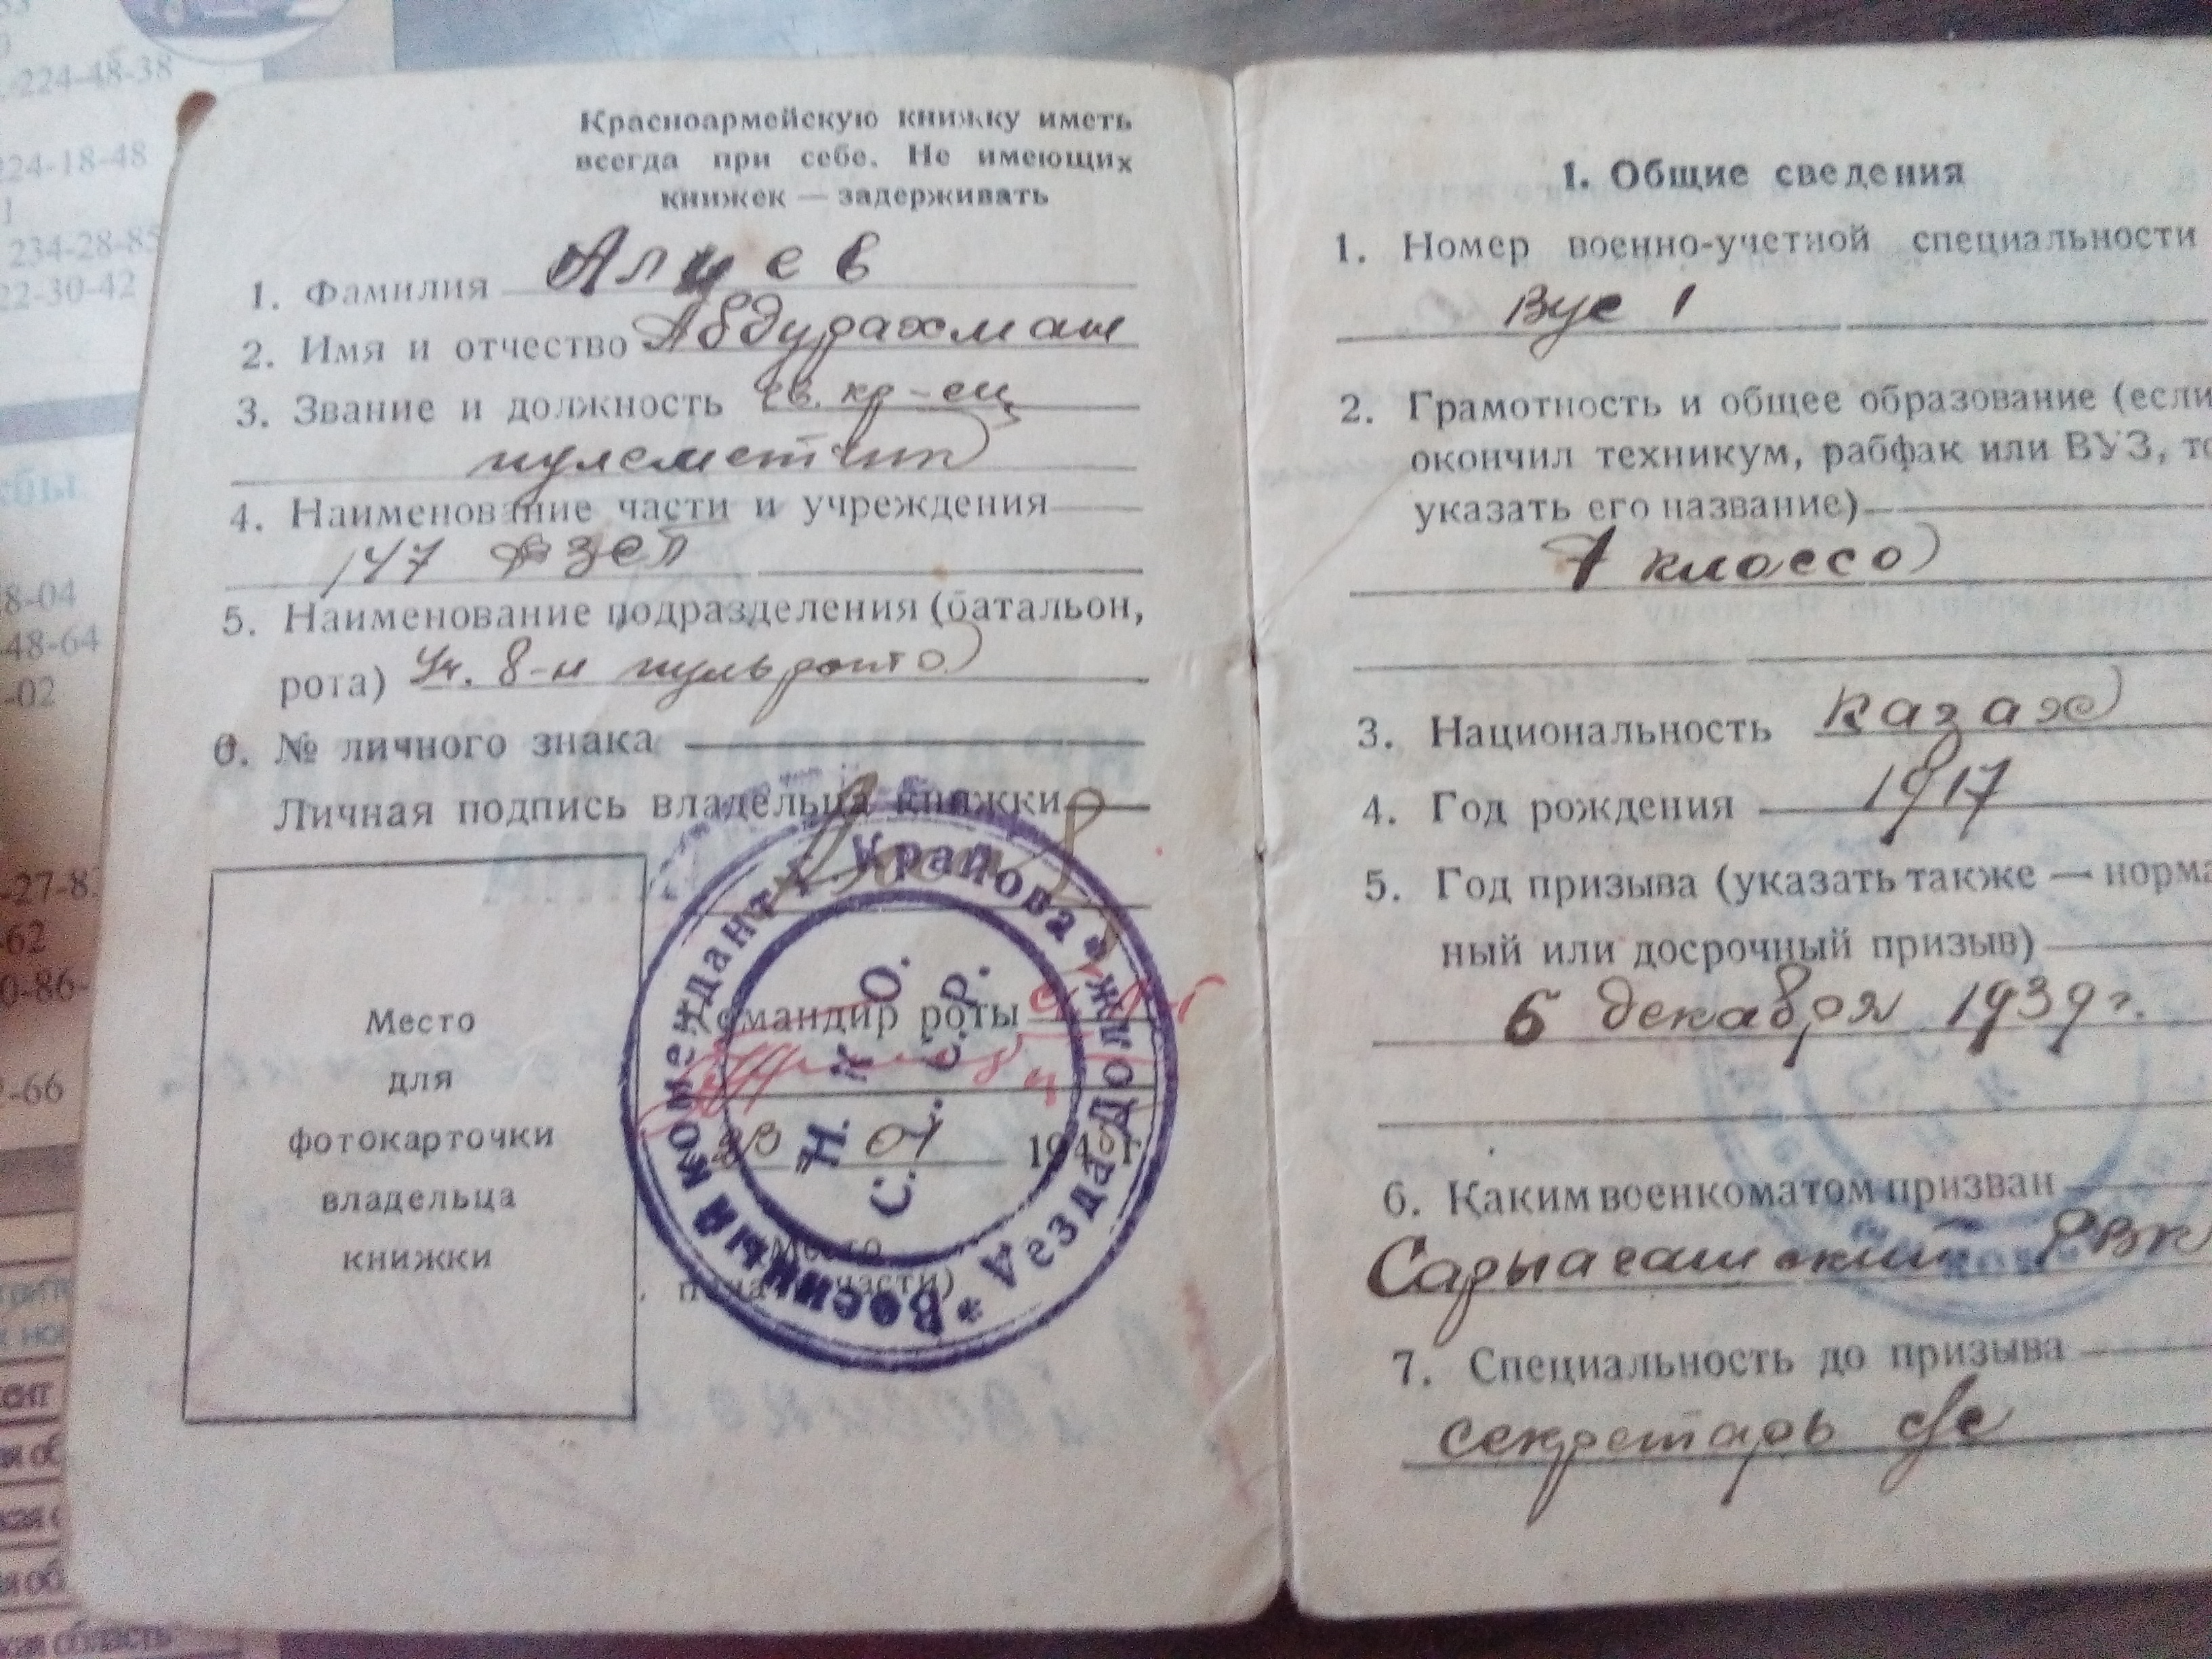 224-48-38
224-18-48
1
234-28-85
22-30-42
сбы
8-04
48-64
-02
-27-8
62
0-86-
2-66
кая область
Красноармейскую книжку иметь
всегда при себе. Не имеющих
книжек — задерживать
1. Фамилия Алиев
2. Имя и отчество Абдурахман
3. Звание и должность гв. кр-ец
пулеметчик
4. Наименование части и учреждения
147 АЗСП
5. Наименование подразделения (батальон,
рота) Уч. 8-я пульрота
6. № личного знака
Личная подпись владельца книжки
Командир роты
23 01 194 г.
Место
печати части)
Место
для
фотокарточки
владельца
книжки
* Военный комендант г. Крайова * жудеца Долж
Н. К. О.
С. С. С. Р.
1. Общие сведения
1. Номер военно-учетной специальности
Вус 1
2. Грамотность и общее образование (если
окончил техникум, рабфак или ВУЗ, то
указать его название)
7 класса
3. Национальность Казах
4. Год рождения 1917
5. Год призыва (указать также — норма
ный или досрочный призыв)
6 декабря 1939 г.
6. Каким военкоматом призван
Сарыагашский РВК
7. Специальность до призыва
секретарь с/с